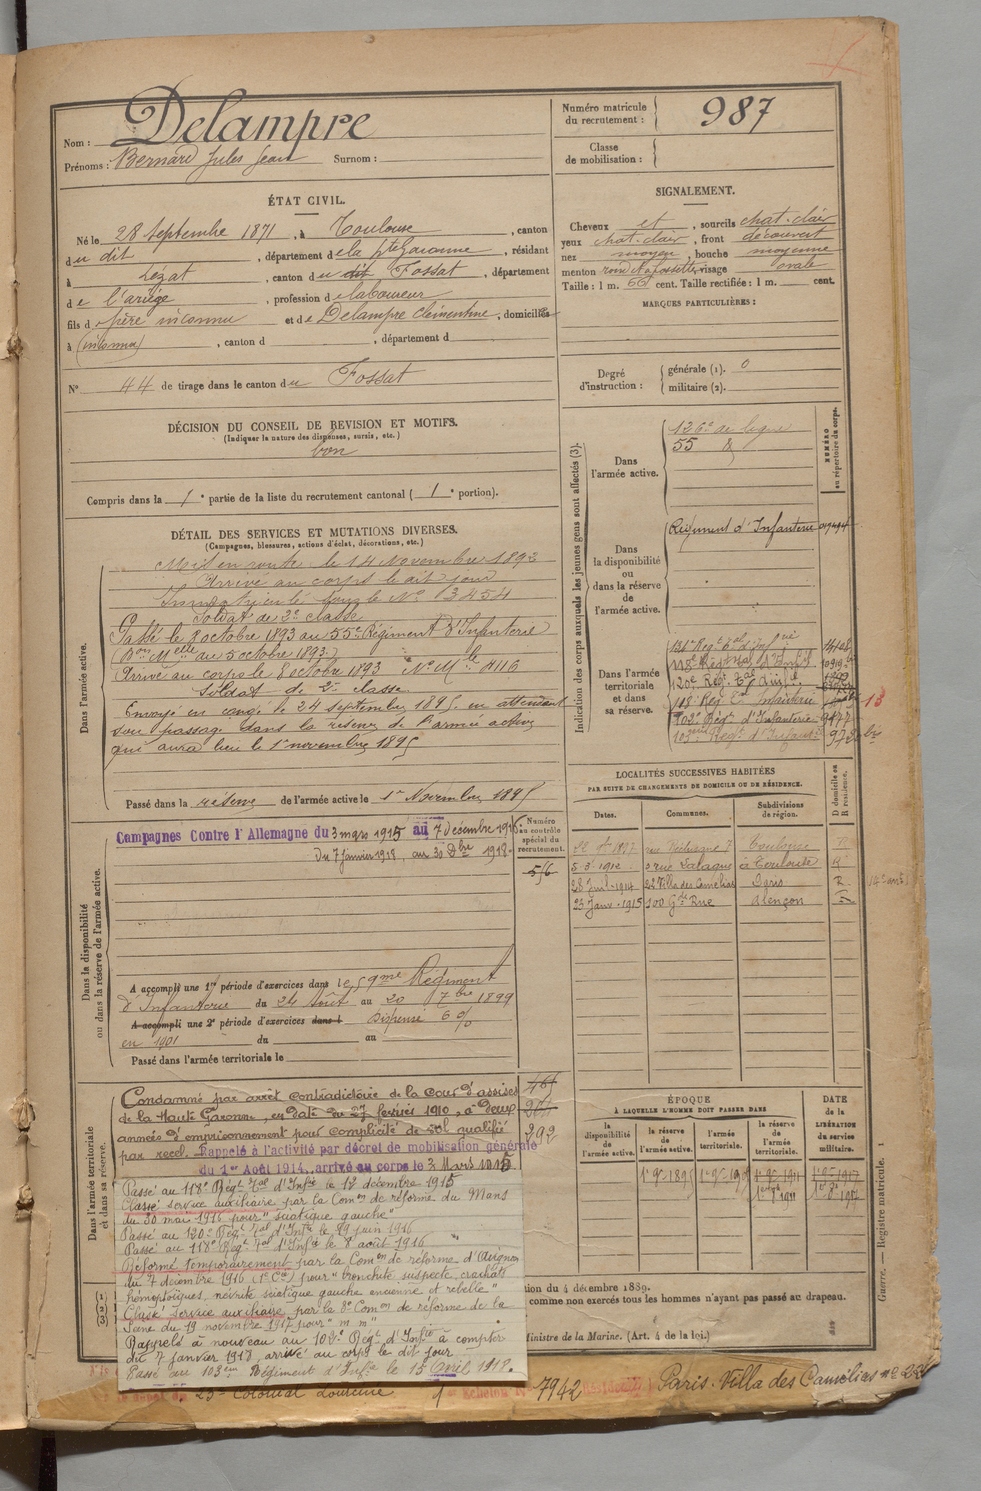 Nom : Delampre
Prénoms : Bernard Jules Jean Surnom :
Numéro matricule du recrutement : 987
Classe de mobilisation :
ÉTAT CIVIL.
Né le 28 Septembre 1871, à Toulouse, canton
du dit, département de la Hte Garonne, résidant
à Lézat, canton du dit Fossat, département
de l'ariège, profession de laboureur
fils de père inconnu et de Delampre Clémentine, domiciliés
à (inconnu), canton d , département d
N° 44 de tirage dans le canton du Fossat
SIGNALEMENT.
Cheveux et, sourcils chat. clair
yeux chat. clair, front découvert
nez moyen, bouche moyenne
menton rond à fossette, visage ovale
Taille : 1 m. 66 cent. Taille rectifiée : 1 m. cent.
MARQUES PARTICULIÈRES :
Degré d'instruction : générale (1). 0
militaire (2).
DÉCISION DU CONSEIL DE REVISION ET MOTIFS.
(Indiquer la nature des dispenses, sursis, etc.)
bon
Compris dans la 1e partie de la liste du recrutement cantonal (1e portion).
DÉTAIL DES SERVICES ET MUTATIONS DIVERSES.
(Campagnes, blessures, actions d'éclat, décorations, etc.)
Dans l'armée active.
Mis en route le 14 Novembre 1892
Arrivé au corps le dit jour
Immatriculé sous le N° 3454
Soldat de 2e classe
Passé le 8 octobre 1893 au 55e Régiment d'Infanterie
(Bon Melle du 5 octobre 1893)
Arrivé au corps le 8 octobre 1893 N° Mle 4116
Soldat de 2e classe
Envoyé en congé le 24 septembre 1895 en attendant
son passage dans la réserve de l'armée active
qui aura lieu le 1er novembre 1895
Passé dans la réserve de l'armée active le 1er Novembre 1895
Indication des corps auxquels les jeunes gens sont affectés (3).
NUMÉRO au répertoire du corps.
Dans l'armée active.
126e de ligne
55 d
Dans la disponibilité ou dans la réserve de l'armée active.
Régiment d'Infanterie
Dans l'armée territoriale et dans sa réserve.
118 Reg Ter Infanterie 13
102e Régt d'Infanterie 9177
103eme Regt d'Infant
LOCALITÉS SUCCESSIVES HABITÉES
PAR SUITE DE CHANGEMENTS DE DOMICILE OU DE RÉSIDENCE.
Dates. Communes. Subdivisions de région. D domicile ou R résidence.
Toulouse
5-3-1912 3 rue Lalagne à Toulouse R
28 Juil-1914 22 Villa des Camélias Paris R
23 Janv. 1915 100 Gde Rue Alençon
Dans la disponibilité ou dans la réserve de l'armée active.
Campagnes Contre l'Allemagne du 3 mars 1915 au 7 décembre 1916
Du 7 janvier 1918, au 30 Xbre 1918.
Numéro au contrôle spécial du recrutement.
A accompli une 1re période d'exercices dans le 59me Régiment
d'Infanterie du 24 Août au 20 7bre 1899
A accompli une 2e période d'exercices dans l Dispensé 6 %
en 1901 du au
Passé dans l'armée territoriale le
Dans l'armée territoriale et dans sa réserve.
Condamné par arrêt contradictoire de la Cour d'assises
de la Haute Garonne, en date du 27 février 1910, à deux
années d'emprisonnement pour complicité de vol qualifié
par recel. Rappelé à l'activité par décret de mobilisation générale
du 1er Août 1914, arrivé au corps le 3 Mars 1915
292
Passé au 118e Régt Tal d'Infie le 12 décembre 1915
Classé service auxiliaire par la Comon de réforme du Mans
du 30 mai 1916 pour "sciatique gauche"
Passé au 120e Régt Tal d'Infie le 29 juin 1916
Passé au 118e Régt Tal d'Infie le 8 août 1916
Réformé temporairement par la Comon de réforme d'Avignon
du 7 décembre 1916 (1e Cie) pour "bronchite suspecte, crachats
hémoptoïques, névrite sciatique gauche ancienne et rebelle"
Classé service auxiliaire par la 8e Comon de réforme de la
Seine du 19 novembre 1917 pour "m m"
Rappelé à nouveau au 102e Régt d'Infie à compter
du 7 janvier 1918, arrivé au corps le dit jour
Passé au 103em Régiment d'Infie le 15 avril 1918.
ÉPOQUE
À LAQUELLE L'HOMME DOIT PASSER DANS
la disponibilité de l'armée active. la réserve de l'armée active. l'armée territoriale. la réserve de l'armée territoriale.
DATE de la LIBÉRATION du service militaire.
tion du 4 décembre 1889.
comme non exercés tous les hommes n'ayant pas passé au drapeau.
inistre de la Marine. (Art. 4 de la loi.)
Guerre. — Registre matricule. 1
23e Colonial Lourcine
Echelon 7942
Paris. Villa des Camélias